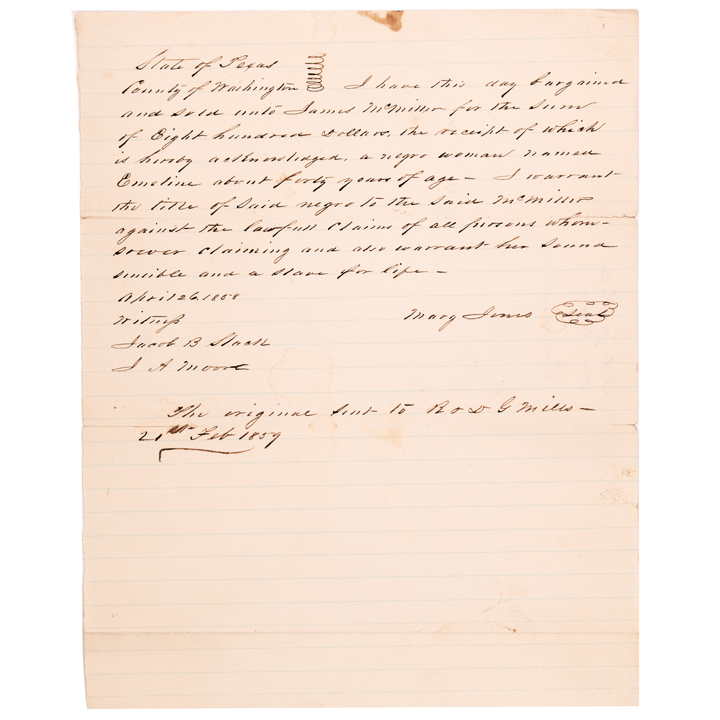 State of Texas
County of Washington I have this day bargained
and sold unto James McMillin for the sum
of Eight hundred Dollars, the receipt of which
is hereby acknowledged, a negro woman named
Emeline about forty years of age — I warrant
the title of said negro to the said McMillin
against the lawfull claims of all persons whom-
soever claiming and also warrant her sound
sensible and a slave for life —
April 26. 1858
Witness Mary Jones Seal
Jacob B Slack
J A Moore
The original sent to R & D G Mills —
21st Feb 1859